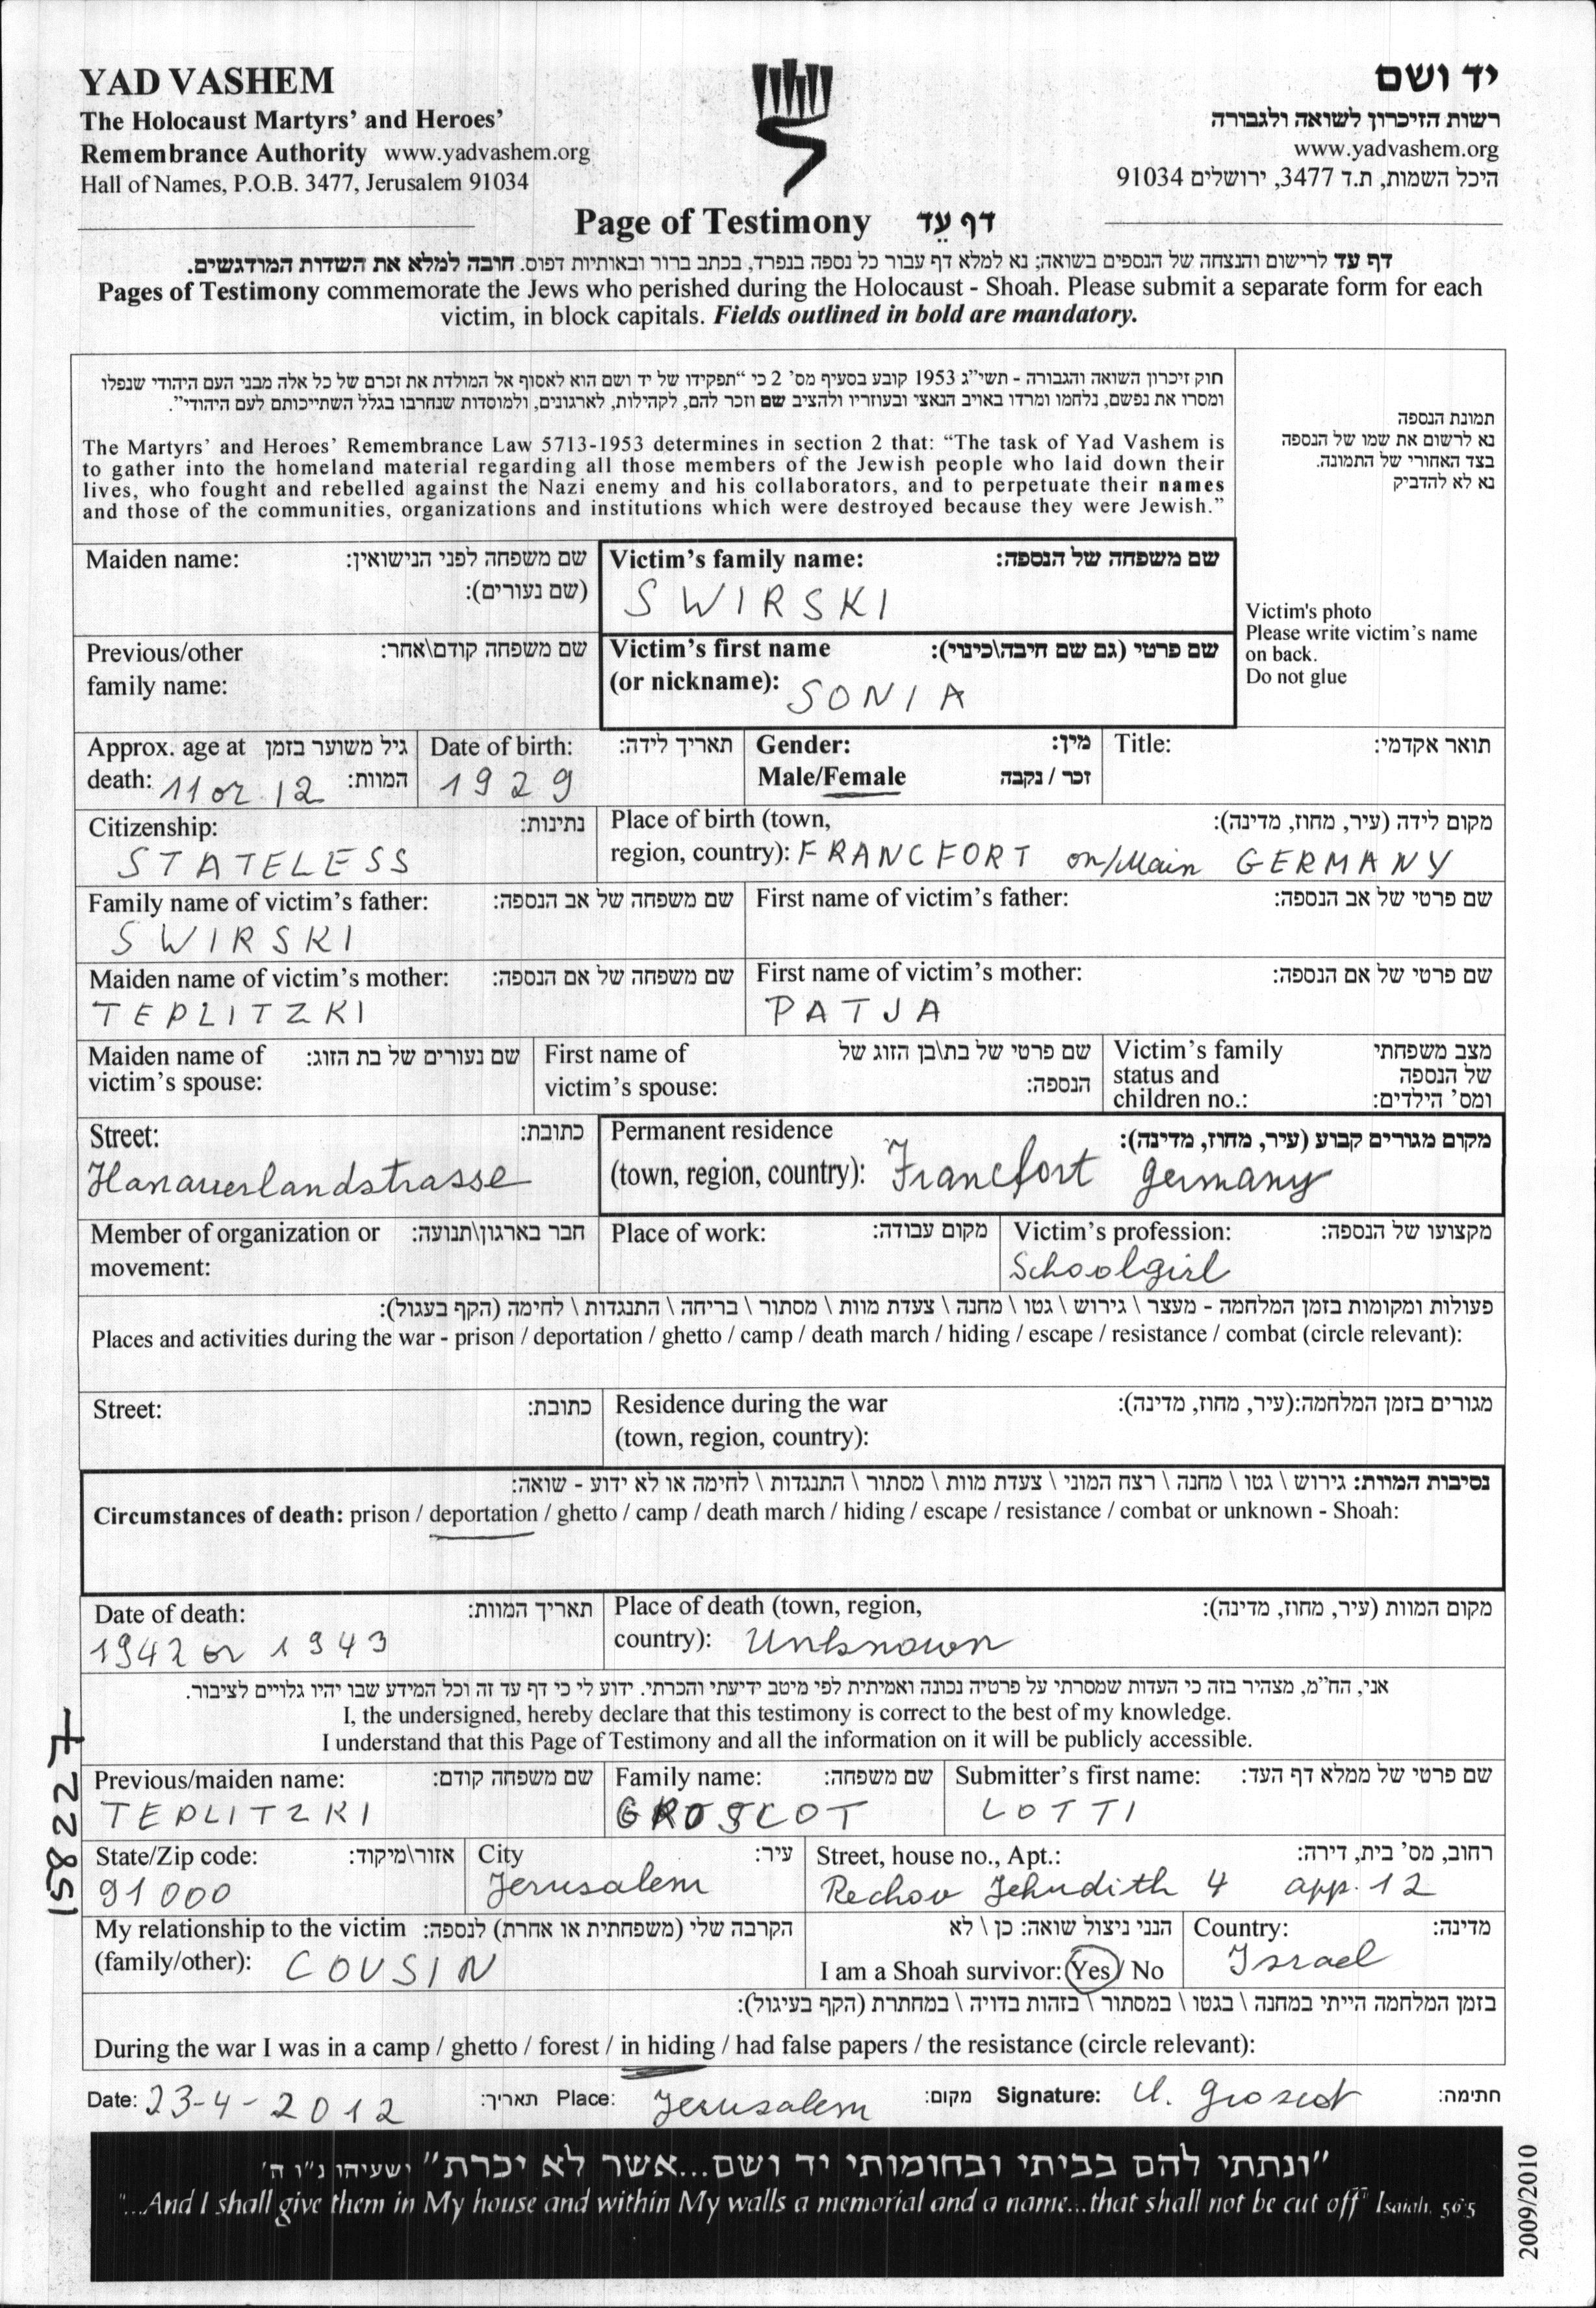 YAD VASHEM
The Holocaust Martyrs' and Heroes'
Remembrance Authority www.yadvashem.org
Hall of Names, P.O.B. 3477, Jerusalem 91034
יד ושם
רשות הזיכרון לשואה ולגבורה
www.yadvashem.org
היכל השמות, ת.ד 3477, ירושלים 91034
Page of Testimony דף עֵד
דף עד לרישום והנצחה של הנספים בשואה; נא למלא דף עבור כל נספה בנפרד, בכתב ברור ובאותיות דפוס. חובה למלא את השדות המודגשים.
Pages of Testimony commemorate the Jews who perished during the Holocaust - Shoah. Please submit a separate form for each
victim, in block capitals. Fields outlined in bold are mandatory.
חוק זיכרון השואה והגבורה - תשי"ג 1953 קובע בסעיף מס' 2 כי "תפקידו של יד ושם הוא לאסוף אל המולדת את זכרם של כל אלה מבני העם היהודי שנפלו
ומסרו את נפשם, נלחמו ומרדו באויב הנאצי ובעוזריו ולהציב שם וזכר להם, לקהילות, לארגונים, ולמוסדות שנחרבו בגלל השתייכותם לעם היהודי".
The Martyrs' and Heroes' Remembrance Law 5713-1953 determines in section 2 that: "The task of Yad Vashem is
to gather into the homeland material regarding all those members of the Jewish people who laid down their
lives, who fought and rebelled against the Nazi enemy and his collaborators, and to perpetuate their names
and those of the communities, organizations and institutions which were destroyed because they were Jewish."
תמונת הנספה
נא לרשום את שמו של הנספה
בצד האחורי של התמונה.
נא לא להדביק
Victim's photo
Please write victim's name
on back.
Do not glue
Maiden name: שם משפחה לפני הנישואין:
(שם נעורים):
Victim's family name: שם משפחה של הנספה:
SWIRSKI
Previous/other שם משפחה קודם\אחר:
family name:
Victim's first name שם פרטי (גם שם חיבה\כינוי):
(or nickname): SONIA
Approx. age at גיל משוער בזמן
death: 11 or 12 המוות:
Date of birth: תאריך לידה:
1929
Gender: מין:
Male/Female זכר / נקבה
Title: תואר אקדמי:
Citizenship: נתינות:
STATELESS
Place of birth (town, מקום לידה (עיר, מחוז, מדינה):
region, country): FRANCFORT on/Main GERMANY
Family name of victim's father: שם משפחה של אב הנספה:
SWIRSKI
First name of victim's father: שם פרטי של אב הנספה:
Maiden name of victim's mother: שם משפחה של אם הנספה:
TEPLITZKI
First name of victim's mother: שם פרטי של אם הנספה:
PATJA
Maiden name of שם נעורים של בת הזוג:
victim's spouse:
First name of שם פרטי של בת\בן הזוג של
victim's spouse: הנספה:
Victim's family מצב משפחתי
status and של הנספה
children no.: ומס' הילדים:
Street: כתובת:
Hanauerlandstrasse
Permanent residence מקום מגורים קבוע (עיר, מחוז, מדינה):
(town, region, country): Francfort Germany
Member of organization or חבר בארגון\תנועה:
movement:
Place of work: מקום עבודה:
Victim's profession: מקצועו של הנספה:
Schoolgirl
פעולות ומקומות בזמן המלחמה - מעצר \ גירוש \ גטו \ מחנה \ צעדת מוות \ מסתור \ בריחה \ התנגדות \ לחימה (הקף בעגול):
Places and activities during the war - prison / deportation / ghetto / camp / death march / hiding / escape / resistance / combat (circle relevant):
Street: כתובת:
Residence during the war מגורים בזמן המלחמה:(עיר, מחוז, מדינה):
(town, region, country):
נסיבות המוות: גירוש \ גטו \ מחנה \ רצח המוני \ צעדת מוות \ מסתור \ התנגדות \ לחימה או לא ידוע - שואה:
Circumstances of death: prison / deportation / ghetto / camp / death march / hiding / escape / resistance / combat or unknown - Shoah:
Date of death: תאריך המוות:
1942 or 1943
Place of death (town, region, מקום המוות (עיר, מחוז, מדינה):
country): Unknown
אני, הח"מ, מצהיר בזה כי העדות שמסרתי על פרטיה נכונה ואמיתית לפי מיטב ידיעתי והכרתי. ידוע לי כי דף עד זה וכל המידע שבו יהיו גלויים לציבור.
I, the undersigned, hereby declare that this testimony is correct to the best of my knowledge.
I understand that this Page of Testimony and all the information on it will be publicly accessible.
Previous/maiden name: שם משפחה קודם:
TEPLITZKI
Family name: שם משפחה:
GROSCOT
Submitter's first name: שם פרטי של ממלא דף העד:
LOTTI
State/Zip code: אזור\מיקוד:
91000
City עיר:
Jerusalem
Street, house no., Apt.: רחוב, מס' בית, דירה:
Rechov Jehudith 4 app. 12
My relationship to the victim הקרבה שלי (משפחתית או אחרת) לנספה:
(family/other): COUSIN
הנני ניצול שואה: כן \ לא
I am a Shoah survivor: Yes / No
Country: מדינה:
Israel
בזמן המלחמה הייתי במחנה \ בגטו \ במסתור \ בזהות בדויה \ במחתרת (הקף בעיגול):
During the war I was in a camp / ghetto / forest / in hiding / had false papers / the resistance (circle relevant):
Date: 23-4-2012 תאריך: Place: Jerusalem מקום: Signature: חתימה:
"ונתתי להם בביתי ובחומותי יד ושם...אשר לא יכרת" ישעיהו נ"ו ה'
"...And I shall give them in My house and within My walls a memorial and a name...that shall not be cut off" Isaiah, 56:5
158227
2009/2010